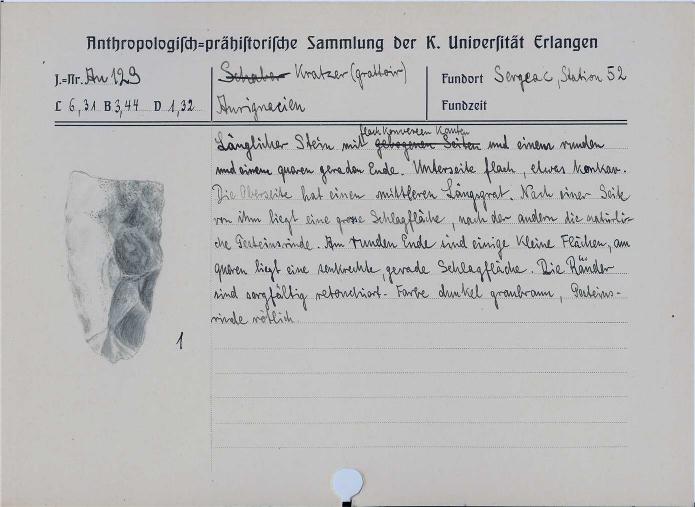 Anthropologisch=prähistorische Sammlung der K. Universität Erlangen
J.=Nr. Au 129
Schaber Kratzer (grattoir)
Fundort Sergeac, Station 52
L 6,31 B 3,44 D 1,32
Aurignacien
Fundzeit
flach konvexen Kanten
Länglicher Stein mit gebogenen Seiten und einem runden
und einem queren geraden Ende. Unterseite flach, etwas konkav.
Die Oberseite hat einen mittleren Längsgrat. Nach einer Seite
von ihm liegt eine grosse Schlagfläche, nach der andern die natürli-
che Gesteinsrinde. Am runden Ende sind einige kleine Flächen, am
queren liegt eine senkrechte, gerade Schlagfläche. Die Ränder
sind sorgfältig retouchiert. Farbe dunkel graubraun, Gesteins-
rinde rötlich.
1